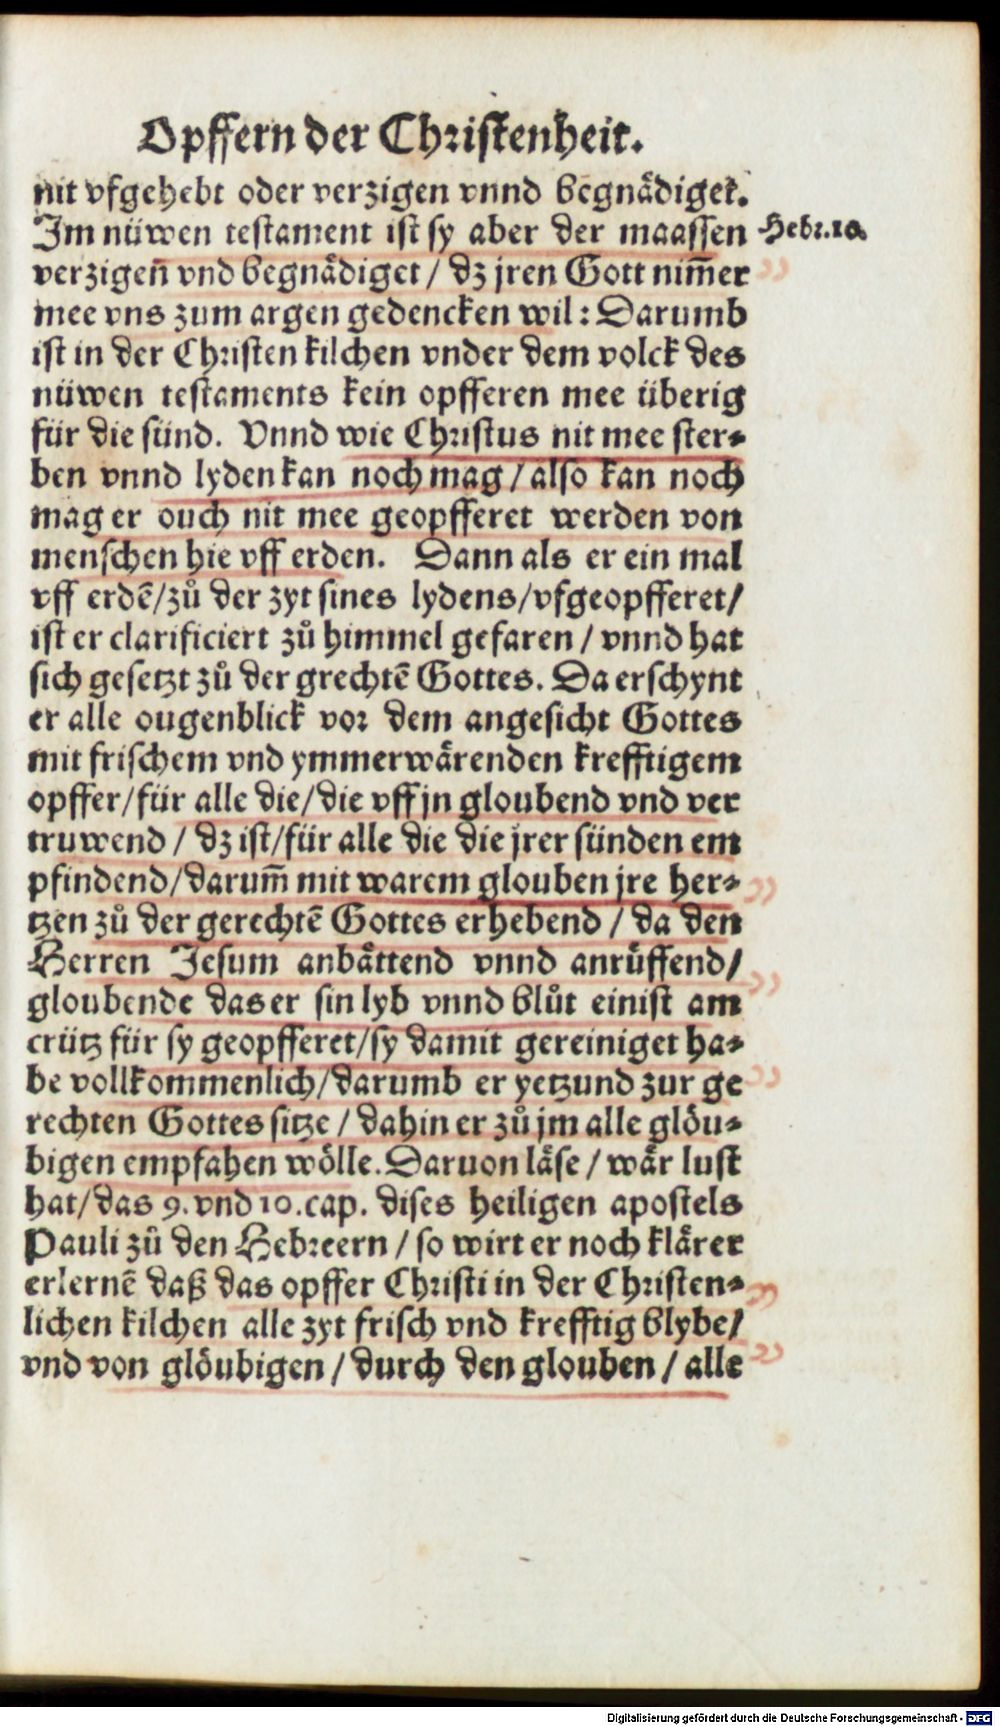 Opffern der Christenheit.
nit vfgehebt oder verzigen vnnd begnådiget.
Im nüwen testament ist sy aber der maassen
Hebr.10.
verzigeñ vnd begnådiget / dz jren Gott nim̄er
mee vns zum argen gedencken wil: Darumb
ist in der Christen kilchen vnder dem volck des
nüwen testaments kein opfferen mee überig
für die sünd. Vnnd wie Christus nit mee ster⸗
ben vnnd lyden kan noch mag / also kan noch
mag er ouch nit mee geopfferet werden von
menschen hie vff erden. Dann als er ein mal
vff erdē/zů der zyt sines lydens/vfgeopfferet/
ist er clarificiert zů himmel gefaren / vnnd hat
sich gesetzt zů der grechtē Gottes. Da erschynt
er alle ougenblick vor dem angesicht Gottes
mit frischem vnd ymmerwårenden krefftigem
opffer/für alle die/die vff jn gloubend vnd ver
truwend / dz ist/für alle die die jrer sünden em
pfindend/darum̄ mit warem glouben jre her⸗
tzen zů der gerechtē Gottes erhebend / da den
Herren Jesum anbåttend vnnd anrüffend/
gloubende das er sin lyb vnnd blůt einist am
crütz für sy geopfferet/sy damit gereiniget ha⸗
be vollkommenlich/darumb er yetzund zur ge
rechten Gottes sitze / dahin er zů jm alle glöu⸗
bigen empfahen wölle. Daruon låse / wår lust
hat/das 9. vnd 10.cap. dises heiligen apostels
Pauli zů den Hebreern / so wirt er noch klårer
erlernē daß das opffer Christi in der Christen⸗
lichen kilchen alle zyt frisch vnd krefftig blybe/
vnd von glöubigen / durch den glouben / alle
Digitalisierung gefördert durch die Deutsche Forschungsgemeinschaft - DFG